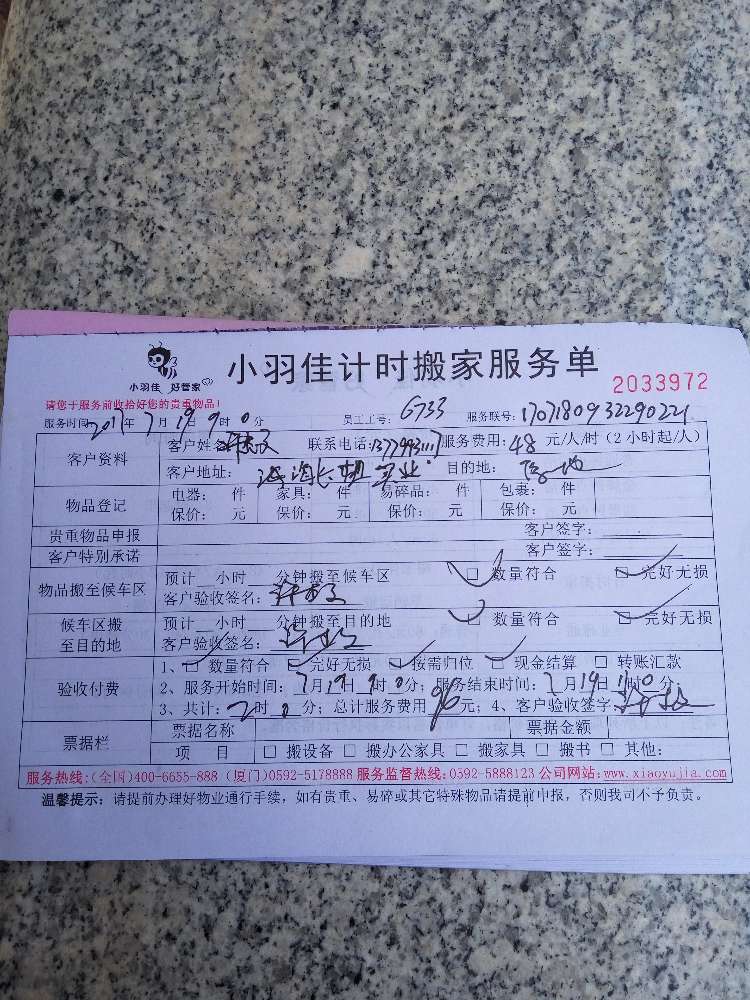 小羽佳 好管家
小羽佳计时搬家服务单
2033972
请您于服务前收拾好您的贵重物品!
服务时间:2017年7月19日9时0分 员工工号: G733 服务联号:1707180932290221
客户资料
客户姓名: 联系电话: 服务费用:48元/人/时(2小时起/人)
客户地址: 目的地:
物品登记
电器: 件 家具: 件 易碎品: 件 包裹: 件
保价: 元 保价: 元 保价: 元 保价: 元
贵重物品申报 客户签字:
客户特别承诺 客户签字:
物品搬至候车区
预计 小时 分钟搬至候车区 数量符合 完好无损
客户验收签名:
候车区搬至目的地
预计 小时 分钟搬至目的地 数量符合 完好无损
客户验收签名:
验收付费
1、数量符合 完好无损 按需归位 现金结算 转账汇款
2、服务开始时间:7月19日9时0分;服务结束时间:7月19日11时0分;
3、共计:2时0分;总计服务费用96元;4、客户验收签字:
票据栏
票据名称 票据金额
项 目 搬设备 搬办公家具 搬家具 搬书 其他:
服务热线:(全国)400-6655-888 (厦门)0592-5178888 服务监督热线:0592-5888123 公司网站:www.xiaoyujia.com
温馨提示:请提前办理好物业通行手续,如有贵重、易碎或其它特殊物品请提前申报,否则我司不予负责。